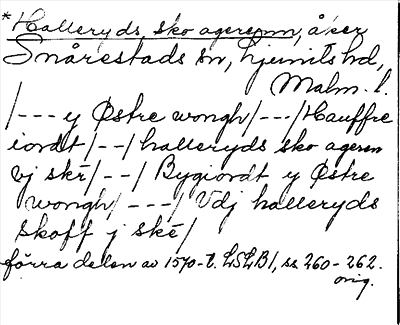 *Halleryds sko ageren, åker
Snårestads sn, Ljunits hd,
Malm. l.
/--- y Østre wongh/---/Hauffre
iordt/--/halleryds sko ageren
vj skr/--/ Bygiordt y Østre
wongh/---/ Vdj halleryds
skoff j skē/
förra delen av 1570-t. LSLB1, ss 260-262.
orig.